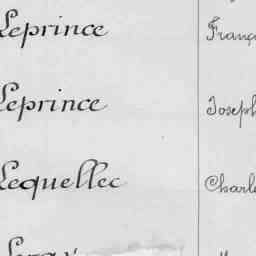 Leprince Franç
Leprince Joseph
Lequellec Charle